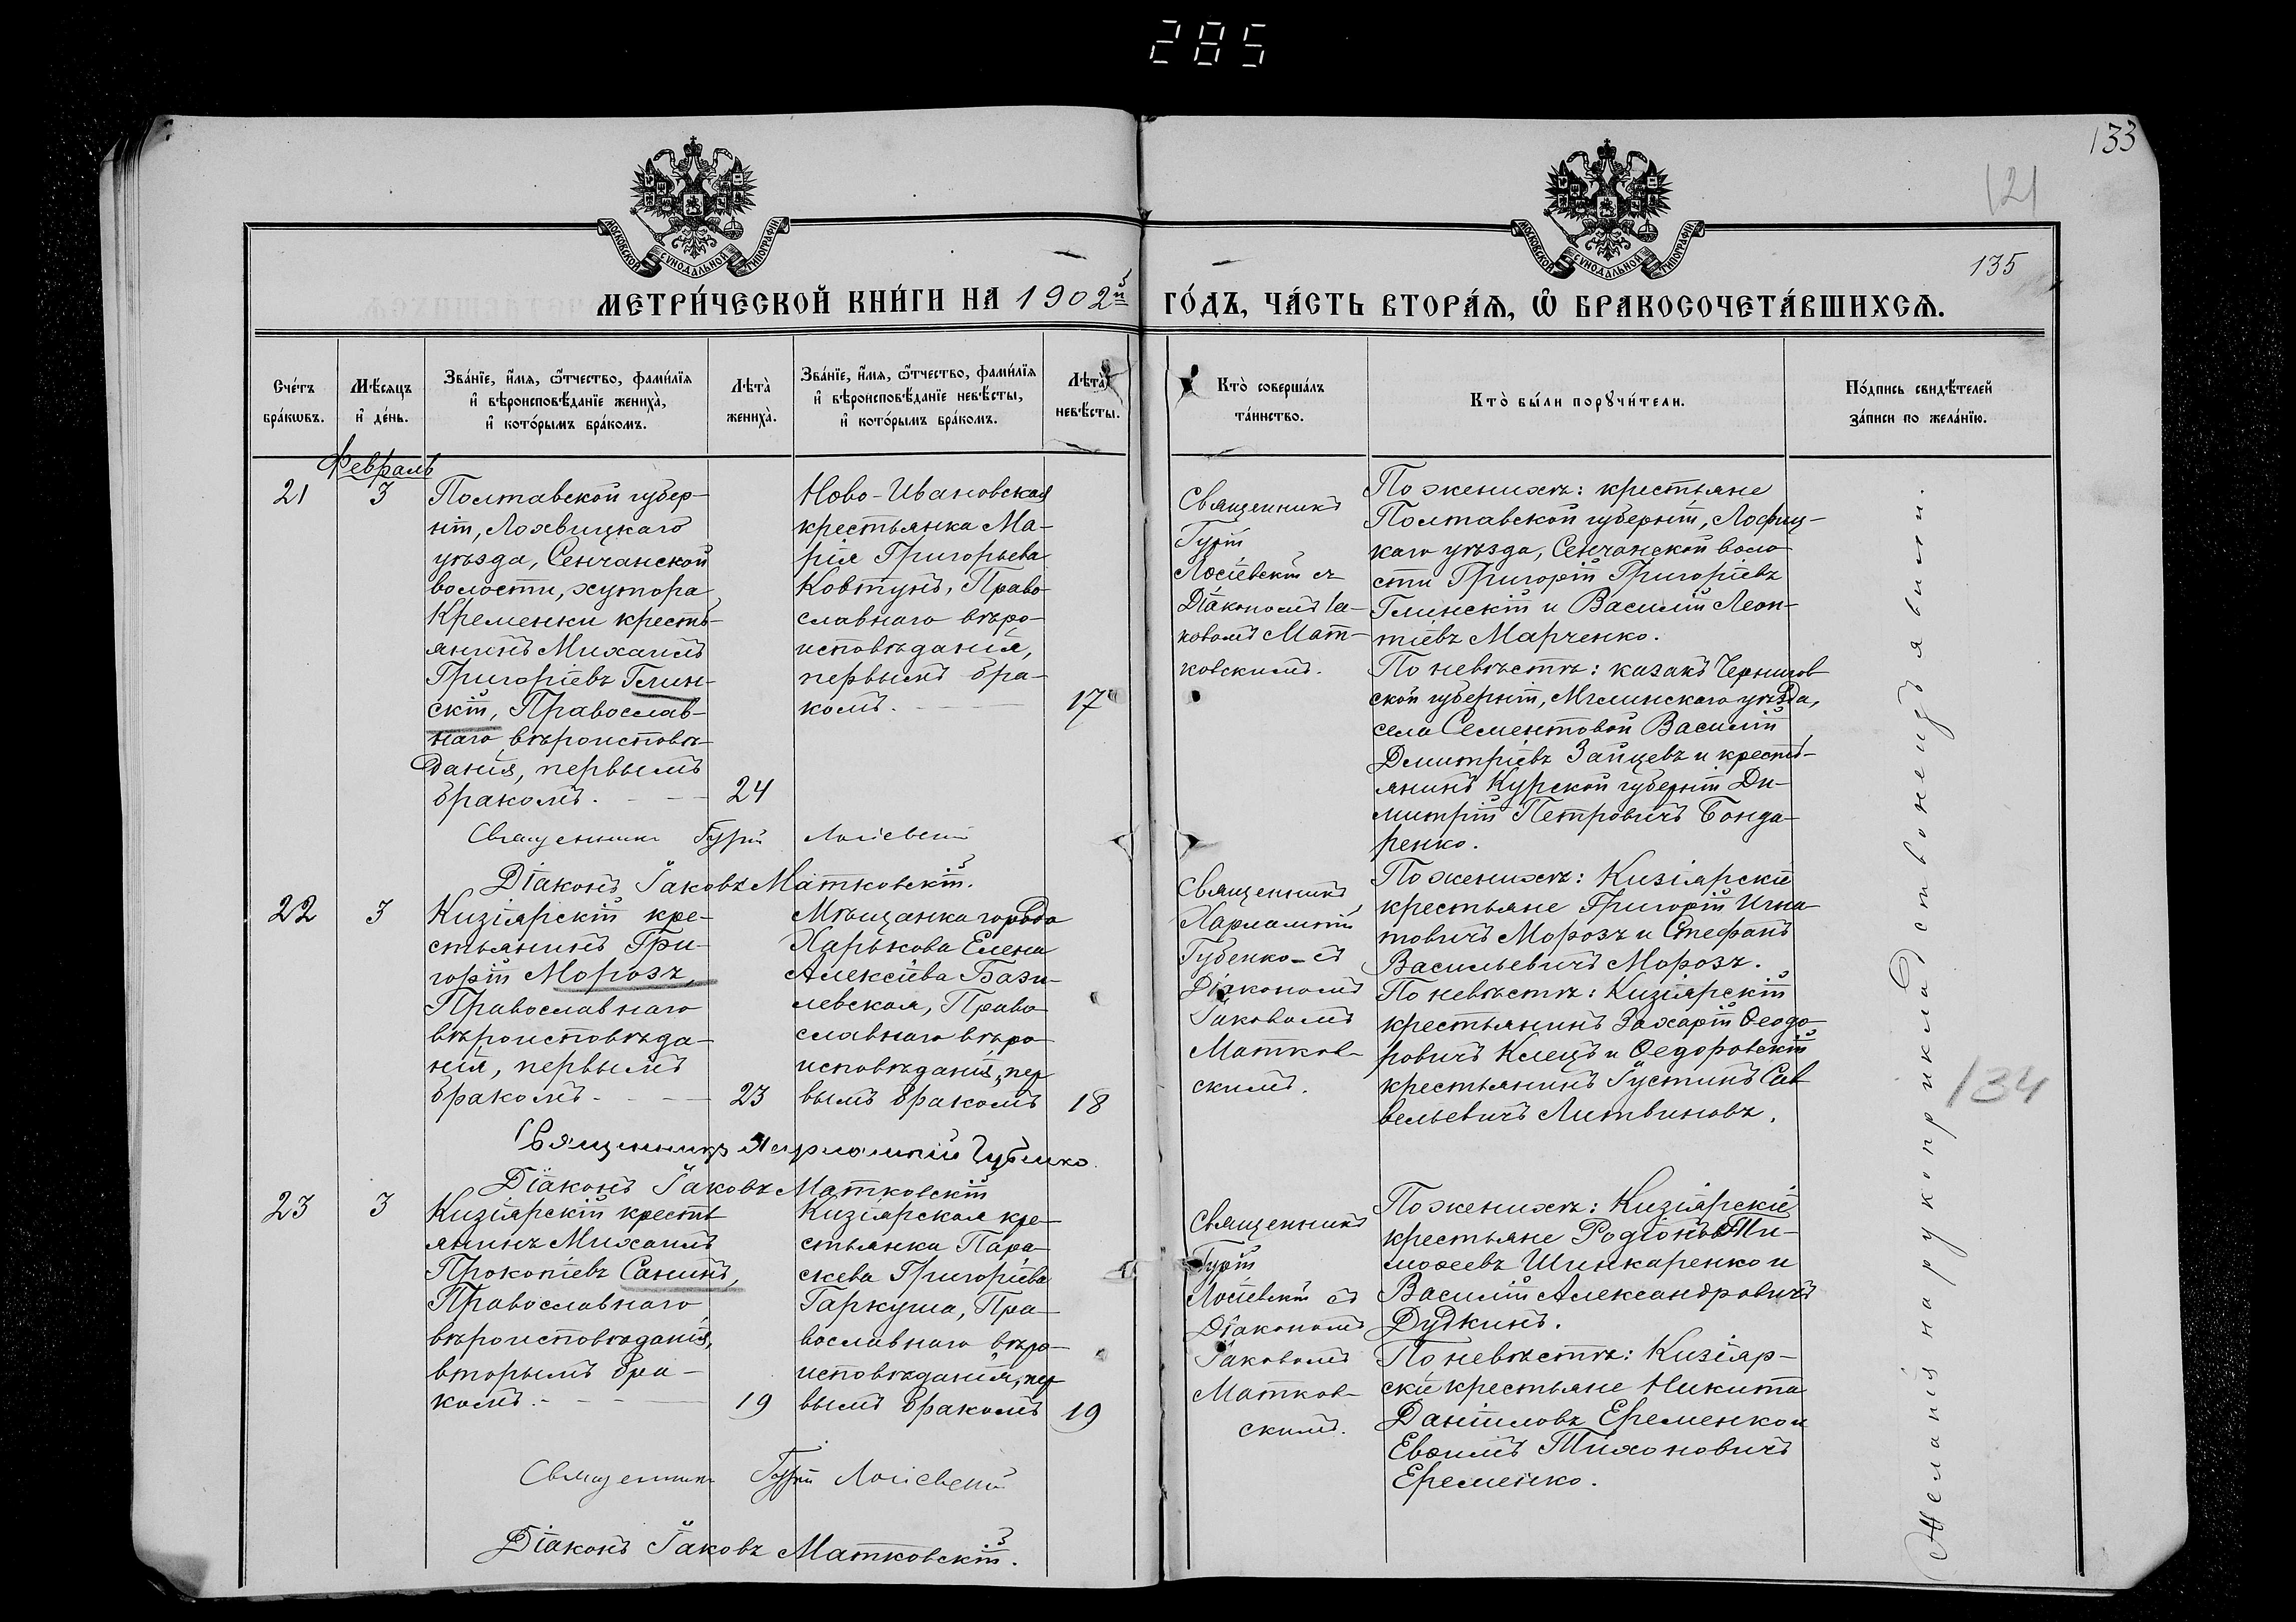 285
133
121
135
МОСКОВСКОЙ СУНОДАЛЬНОЙ ТИПОГРАФІИ
МОСКОВСКОЙ СУНОДАЛЬНОЙ ТИПОГРАФІИ
МЕТРИ́ЧЕСКОЙ КНИ́ГИ НА 1902й ГО́ДЪ, ЧА́СТЬ ВТОРА́Ѧ, Ѽ БРАКОСОЧЕТА́ВШИХСѦ.
Сче́тъ
бра́кѡвъ.
Мѣ́сяцъ
и҆ де́нь.
Зва́нїе, и҆́мя, ѻ҆́тчество, фами́лїя
и҆ вѣроисповѣ́данїе жениха̀,
и҆ кото́рымъ бра́комъ.
Лѣта̀
жениха̀.
Зва́нїе, и҆́мя, ѻ҆́тчество, фами́лїя
и҆ вѣроисповѣ́данїе невѣ́сты,
и҆ кото́рымъ бра́комъ.
Лѣта̀
невѣ́сты.
Кто̀ соверша́лъ
та́инство.
Кто̀ бы́ли порꙋчи́тели.
По́дпись свидѣ́телей
за́писи по жела́нїю.
Февраль
21
3
Полтавской губер-
ніи, Лохвицкаго
уѣзда, Сенчанской
волости, хутора
Кременки кресть-
янинъ Михаилъ
Григоріевъ Глин-
скій, Православ-
наго вѣроисповѣ-
данія, первымъ
бракомъ.
24
Ново-Ивановская
крестьянка Ма-
рія Григорьева
Ковтунъ, Право-
славнаго вѣро-
исповѣданія,
первымъ бра-
комъ.
17
Священникъ
Гурій
Лосіевскій съ
Діакономъ Іа-
ковомъ Мат-
ковскимъ.
По женихѣ: крестьяне
Полтавской губерніи, Лофиц-
каго уѣзда, Сенчанской воло-
сти Григорій Григоріевъ
Глинскій и Василій Леон-
тіевъ Марченко.
По невѣстѣ: казакъ Чернигов
ской губерніи, Мглинскаго уѣзда,
села Сементовой Василій
Дмитріевъ Зайцевъ и кресть-
янинъ Курской губерніи Ди-
митрій Петровичъ Бонда-
ренко.
Священникъ Гурій Лосіевскій
Діаконъ Іаковъ Матковскій.
22
3
Кизіярскій кре-
стьянинъ Гри-
горій Морозъ,
Православнаго
вѣроисповѣда-
нія, первымъ
бракомъ.
23
Мѣщанка города
Харькова Елена
Алексіева Бази-
левская, Право-
славнаго вѣро-
исповѣданія, пер
вымъ бракомъ
18
Священникъ
Харлампій
Губенко съ
Діакономъ
Іаковомъ
Матков-
скимъ.
По женихѣ: Кизіярскіе
крестьяне Григорій Игна-
товичъ Морозъ и Стефанъ
Васильевичъ Морозъ.
По невѣстѣ: Кизіярскій
крестьянинъ Захарій Ѳеодо-
ровичъ Клецъ и Ѳедоровскій
крестьянинъ Іустинъ Сав
вельевичъ Литвиновъ.
Священникъ Харлампій Губенко.
Діаконъ Іаковъ Матковскій
23
3
Кизіярскій кресть
янинъ Михаилъ
Прокопіевъ Санинъ,
Православнаго
вѣроисповѣданія,
вторымъ бра-
комъ.
19
Кизіярская кре-
стьянка Пара-
скева Григоріева
Гаркуша, Пра-
вославнаго вѣро-
исповѣданія, пер
вымъ бракомъ
19
Священникъ
Гурій
Лосіевскій съ
Діакономъ
Іаковомъ
Матков-
скимъ.
По женихѣ: Кизіярскіе
крестьяне Родіонъ Ти-
моѳеевъ Шинкаренко и
Василій Александровичъ
Дудкинъ.
По невѣстѣ: Кизіяр-
скіе крестьяне Никита
Даніиловъ Еременко и
Евѳимъ Тихоновичъ
Еременко.
Священникъ Гурій Лосіевскій
Діаконъ Іаковъ Матковскій.
Желанія на рукоприкладство не изъявили.
134